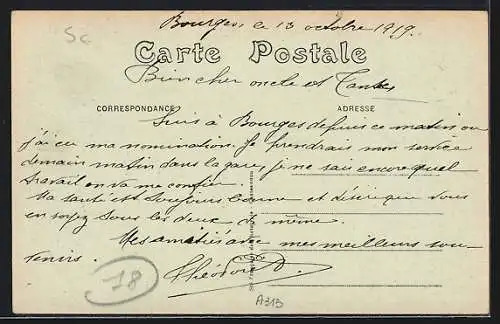 Sc
Bourges le 13 octobre 1919.
Carte Postale
Bien cher oncle et Tante
CORRESPONDANCE
ADRESSE
Suis à Bourges depuis ce matin ou
j'ai eu ma nomination. Je prendrais mon service
demain matin dans la gare, je ne sais encore quel
travail on va me confier.
Ma santé est toujours bonne et désire que vous
en soyez tous les deux de même.
Mes amitiés avec mes meilleurs sou-
venirs.
Théodore
18
A313